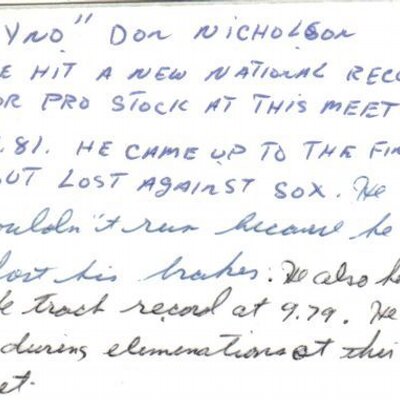 YNO" DON NICHOLSON
E HIT A NEW NATIONAL RECO
OR PRO STOCK AT THIS MEET
.81. HE CAME UP TO THE FIN
OUT LOST AGAINST SOX. He
ouldn't run because he
lost his brakes. He also h
e track record at 9.79. He
during elemenations at this
et.